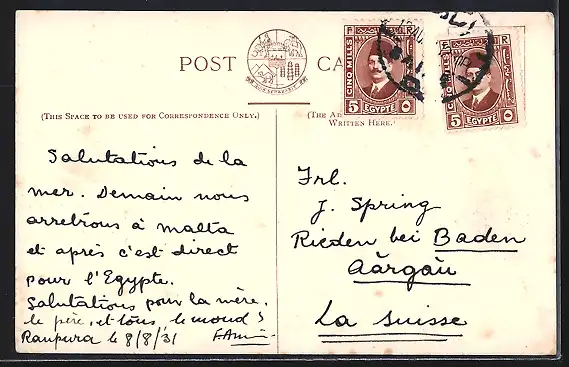 POST CA
(THIS SPACE TO BE USED FOR CORRESPONDENCE ONLY.)
(THE AD
WRITTEN HERE.)
F CINQ MILLS R
5 EGYPTE ٥
F R
5 EGYPTE ٥
Salutations de la
mer. Demain nous
arretrons à Malta
et après c'est direct
pour l'Egypte.
Salutations pour la mère,
le père, et tous le mond
Ranpura le 8/8/31
Frl.
J. Spring
Rieden bei Baden
Aärgäu
La Suisse